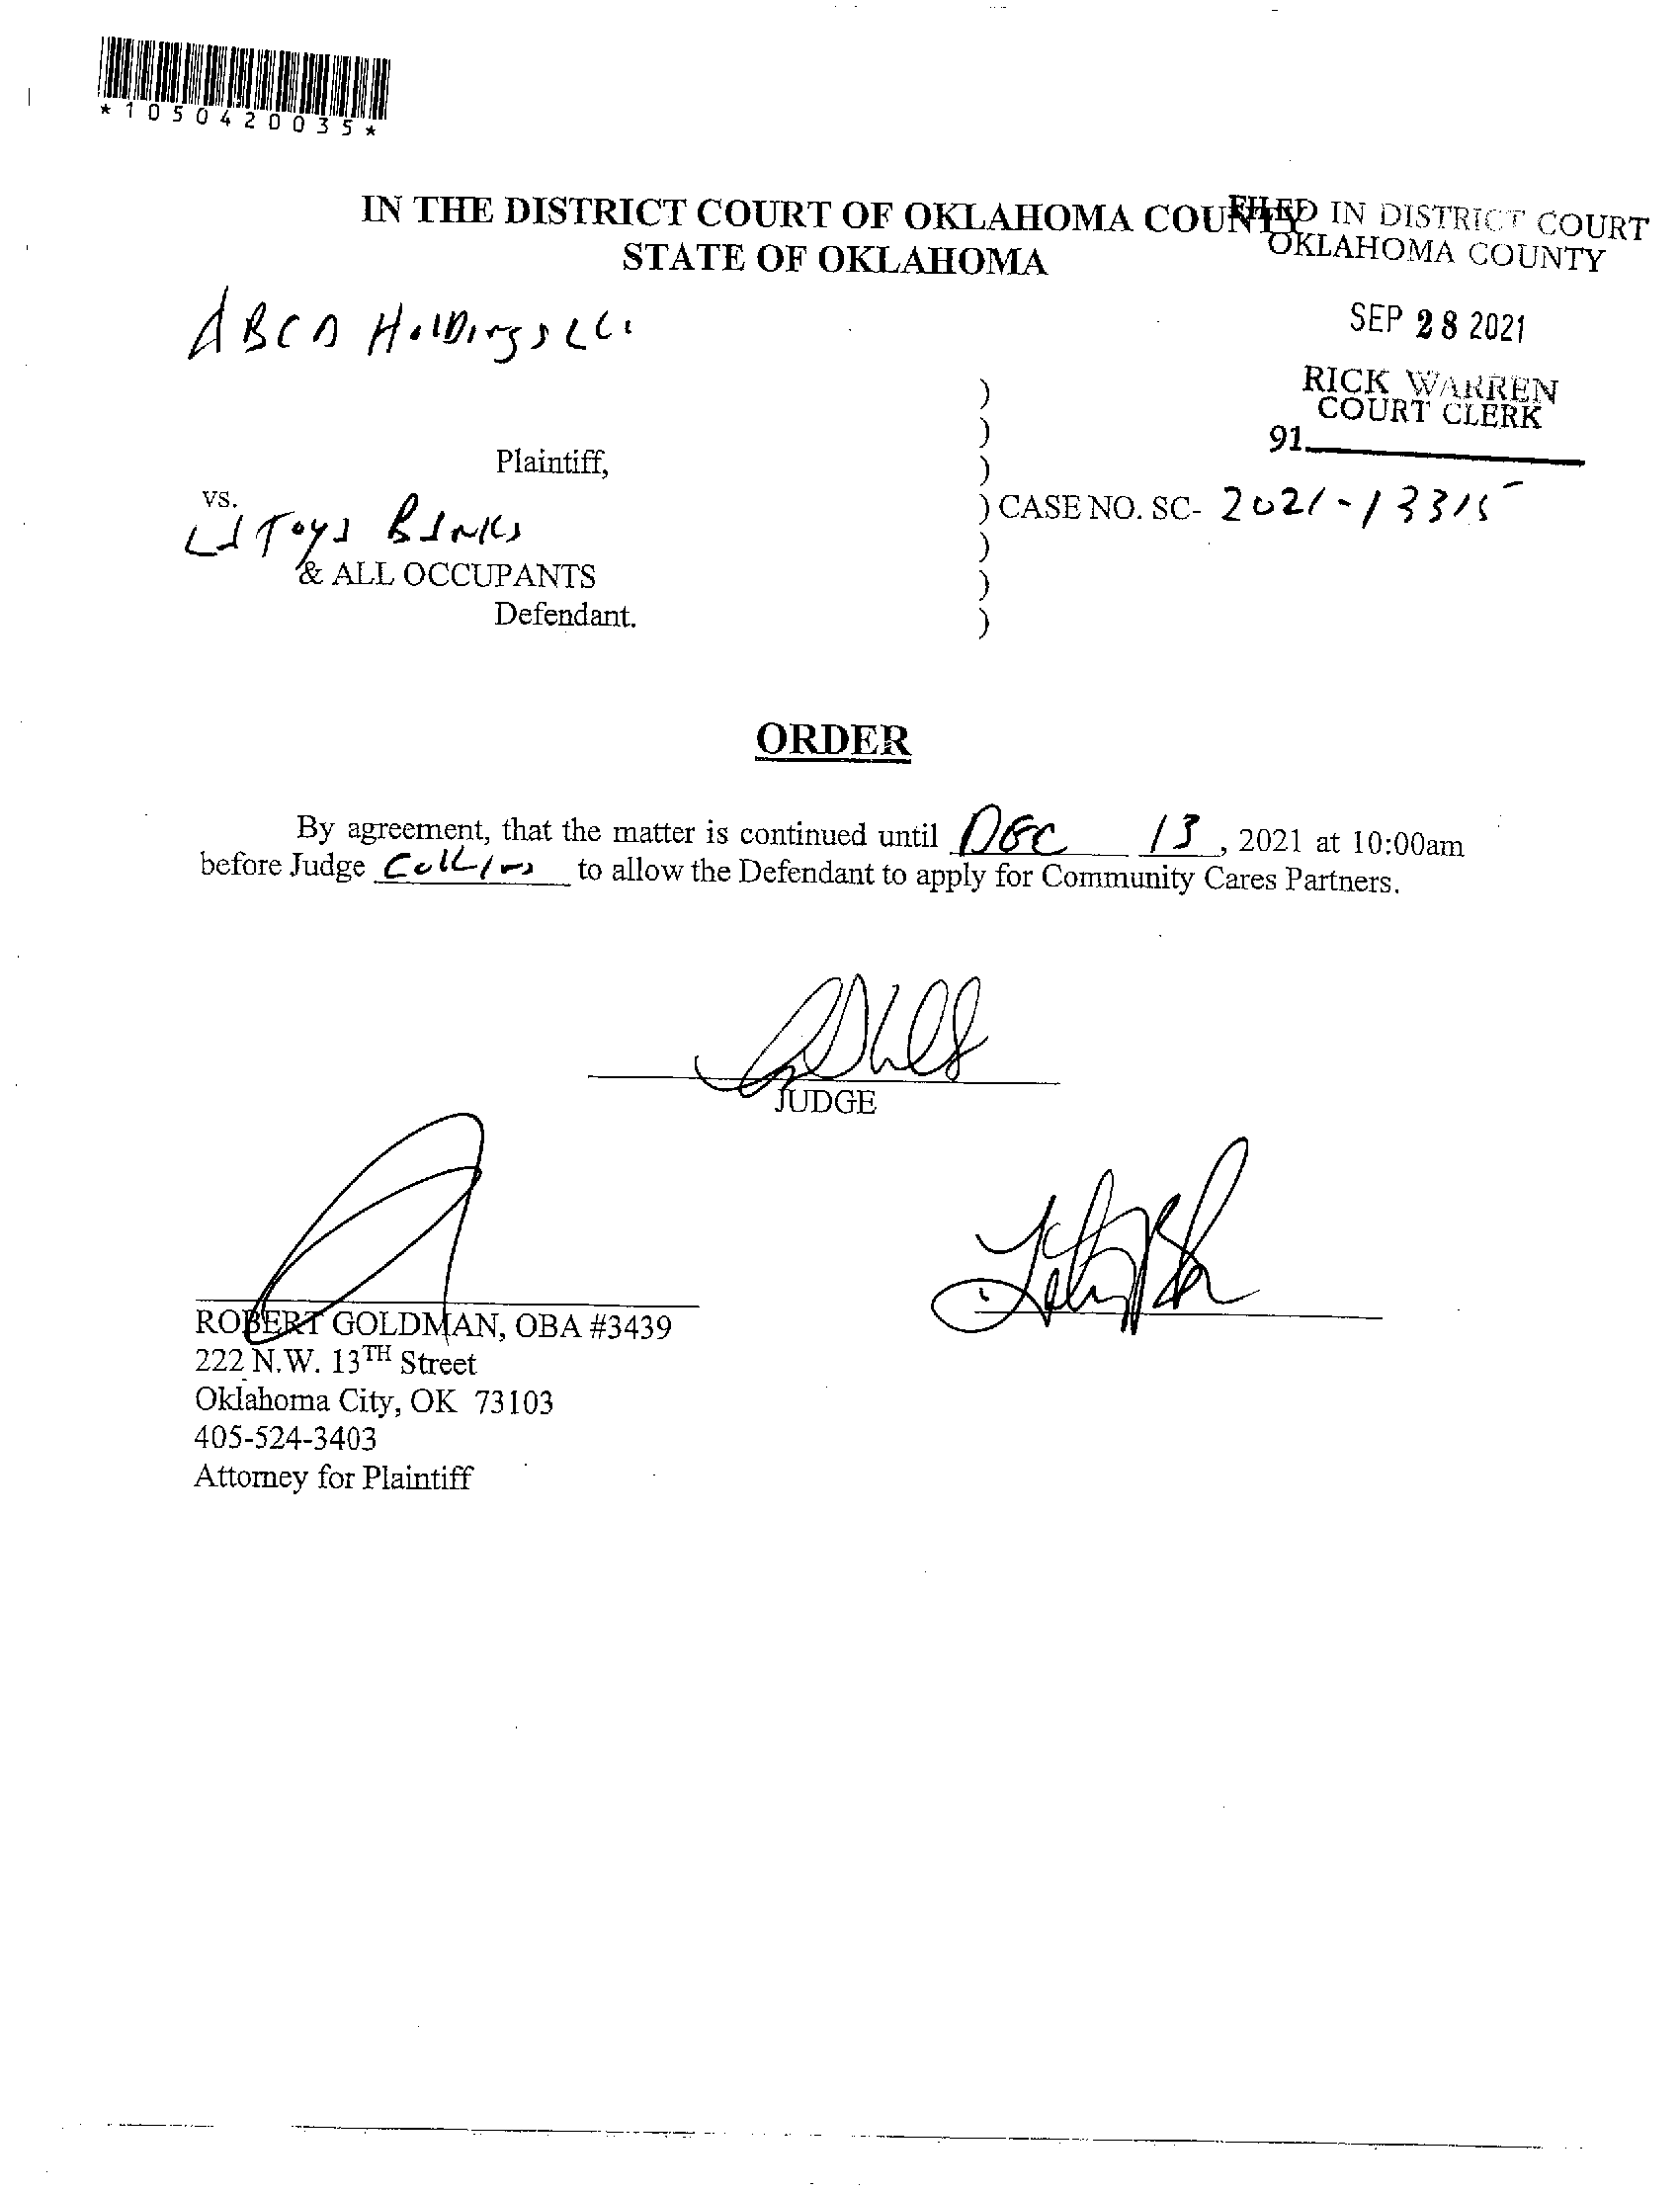 *1050420035*
IN THE DISTRICT COURT OF OKLAHOMA COUNTY
STATE OF OKLAHOMA
FILED IN DISTRICT COURT
OKLAHOMA COUNTY
SEP 28 2021
RICK WARREN
COURT CLERK
91
ABCD Holdings LLC
)
)
Plaintiff,
)
vs.
) CASE NO. SC- 2021-13315
LaToya Banks
)
& ALL OCCUPANTS
)
Defendant.
)
ORDER
By agreement, that the matter is continued until DEC 13, 2021 at 10:00am
before Judge Collins to allow the Defendant to apply for Community Cares Partners.
JUDGE
ROBERT GOLDMAN, OBA #3439
222 N.W. 13TH Street
Oklahoma City, OK 73103
405-524-3403
Attorney for Plaintiff